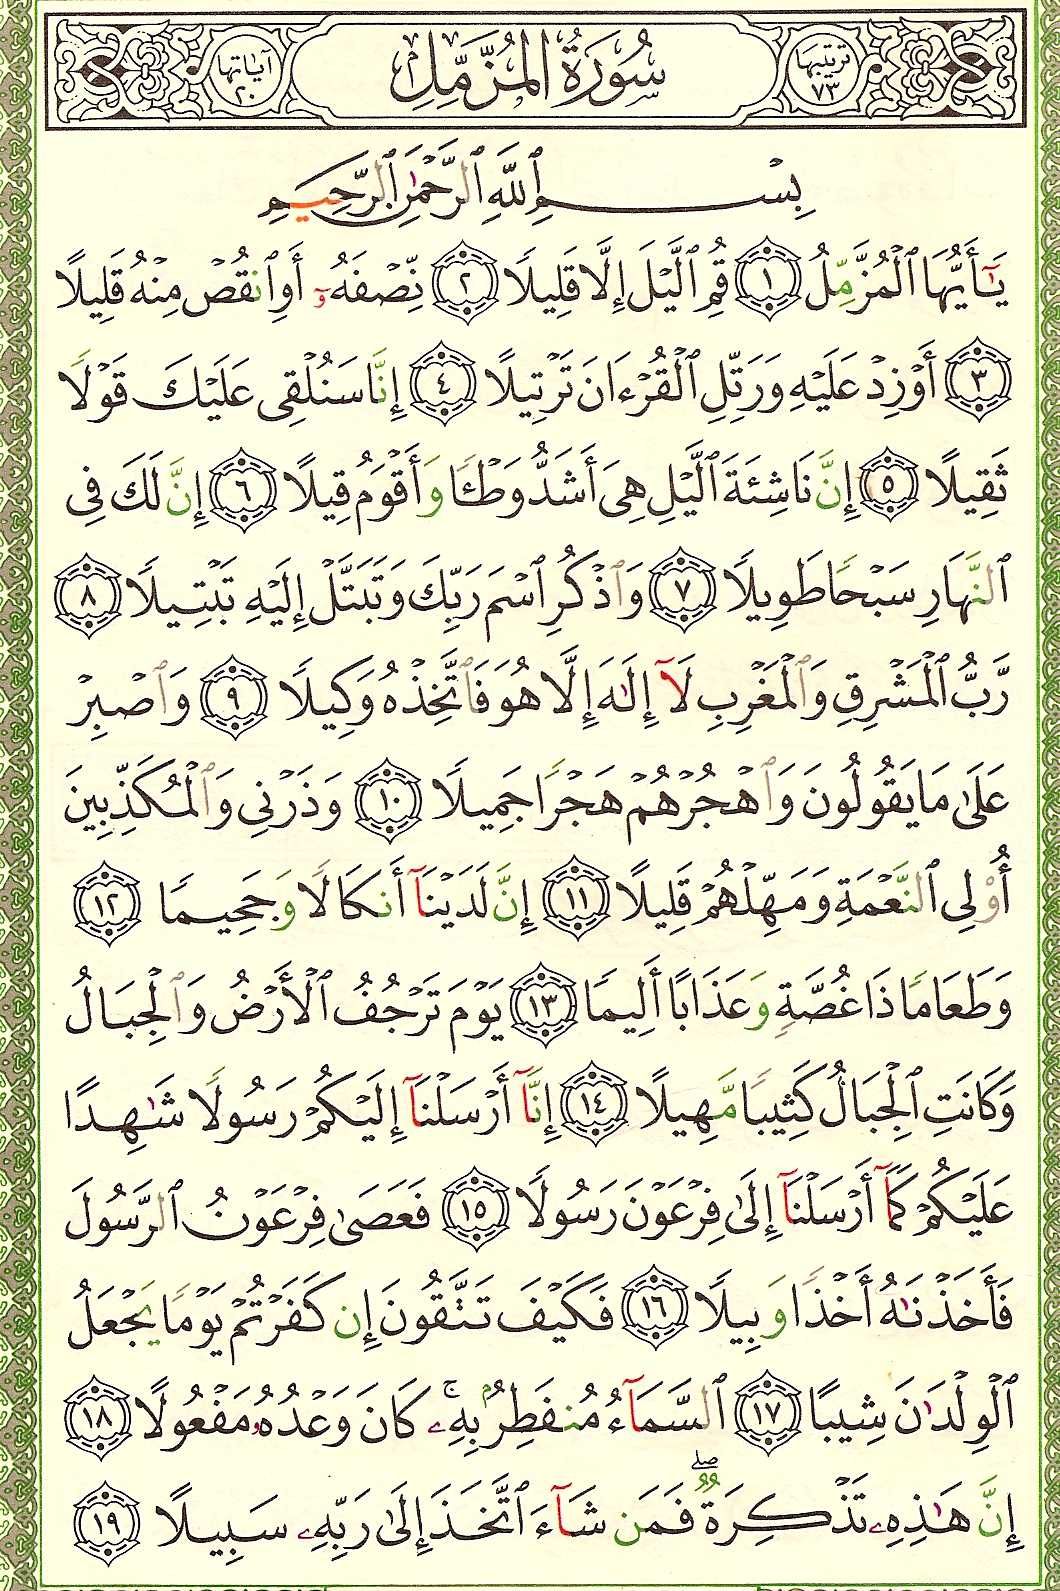 ترتيبها ٧٣
سُورَةُ المُزَّمِّلِ
آيَاتها ٢٠
بِسْمِ ٱللَّهِ ٱلرَّحْمَٰنِ ٱلرَّحِيمِ
يَٰٓأَيُّهَا ٱلْمُزَّمِّلُ ١ قُمِ ٱلَّيْلَ إِلَّا قَلِيلًا ٢ نِّصْفَهُۥٓ أَوِ ٱنقُصْ مِنْهُ قَلِيلًا
٣ أَوْ زِدْ عَلَيْهِ وَرَتِّلِ ٱلْقُرْءَانَ تَرْتِيلًا ٤ إِنَّا سَنُلْقِى عَلَيْكَ قَوْلًا
ثَقِيلًا ٥ إِنَّ نَاشِئَةَ ٱلَّيْلِ هِىَ أَشَدُّ وَطْـًٔا وَأَقْوَمُ قِيلًا ٦ إِنَّ لَكَ فِى
ٱلنَّهَارِ سَبْحًا طَوِيلًا ٧ وَٱذْكُرِ ٱسْمَ رَبِّكَ وَتَبَتَّلْ إِلَيْهِ تَبْتِيلًا ٨
رَّبُّ ٱلْمَشْرِقِ وَٱلْمَغْرِبِ لَآ إِلَٰهَ إِلَّا هُوَ فَٱتَّخِذْهُ وَكِيلًا ٩ وَٱصْبِرْ
عَلَىٰ مَا يَقُولُونَ وَٱهْجُرْهُمْ هَجْرًا جَمِيلًا ١٠ وَذَرْنِى وَٱلْمُكَذِّبِينَ
أُو۟لِى ٱلنَّعْمَةِ وَمَهِّلْهُمْ قَلِيلًا ١١ إِنَّ لَدَيْنَآ أَنكَالًا وَجَحِيمًا ١٢
وَطَعَامًا ذَا غُصَّةٍ وَعَذَابًا أَلِيمًا ١٣ يَوْمَ تَرْجُفُ ٱلْأَرْضُ وَٱلْجِبَالُ
وَكَانَتِ ٱلْجِبَالُ كَثِيبًا مَّهِيلًا ١٤ إِنَّآ أَرْسَلْنَآ إِلَيْكُمْ رَسُولًا شَٰهِدًا
عَلَيْكُمْ كَمَآ أَرْسَلْنَآ إِلَىٰ فِرْعَوْنَ رَسُولًا ١٥ فَعَصَىٰ فِرْعَوْنُ ٱلرَّسُولَ
فَأَخَذْنَٰهُ أَخْذًا وَبِيلًا ١٦ فَكَيْفَ تَتَّقُونَ إِن كَفَرْتُمْ يَوْمًا يَجْعَلُ
ٱلْوِلْدَٰنَ شِيبًا ١٧ ٱلسَّمَآءُ مُنفَطِرٌۢ بِهِۦ ۚ كَانَ وَعْدُهُۥ مَفْعُولًا ١٨
إِنَّ هَٰذِهِۦ تَذْكِرَةٌ ۖ فَمَن شَآءَ ٱتَّخَذَ إِلَىٰ رَبِّهِۦ سَبِيلًا ١٩